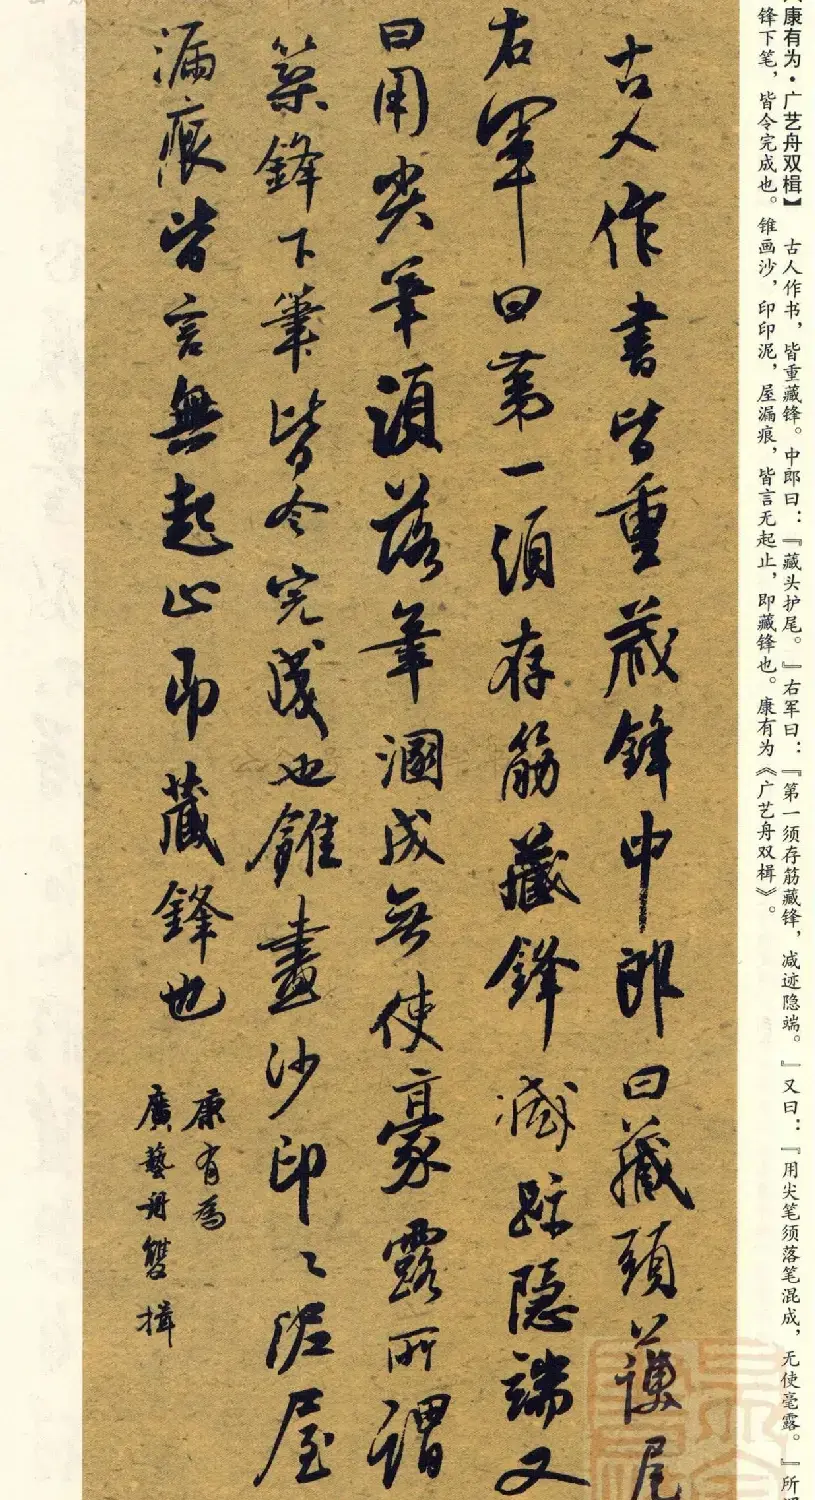 康有为·广艺舟双楫】 古人作书，皆重藏锋。中郎曰：『藏头护尾。』右军曰：『第一须存筋藏锋，减迹隐端。』又曰：『用尖笔须落笔混成，无使毫露。』所
锋下笔，皆令完成也。锥画沙，印印泥，屋漏痕，皆言无起止，即藏锋也。康有为《广艺舟双楫》。
古人作書皆重藏鋒中郎曰藏頭護尾
右軍曰第一須存筋藏鋒減跡隱端又
曰用尖筆須落筆溷成無使豪露所謂
築鋒下筆皆令完成也錐畫沙印〻泥屋
漏痕皆言無起止即藏鋒也
康有為
廣藝舟雙楫